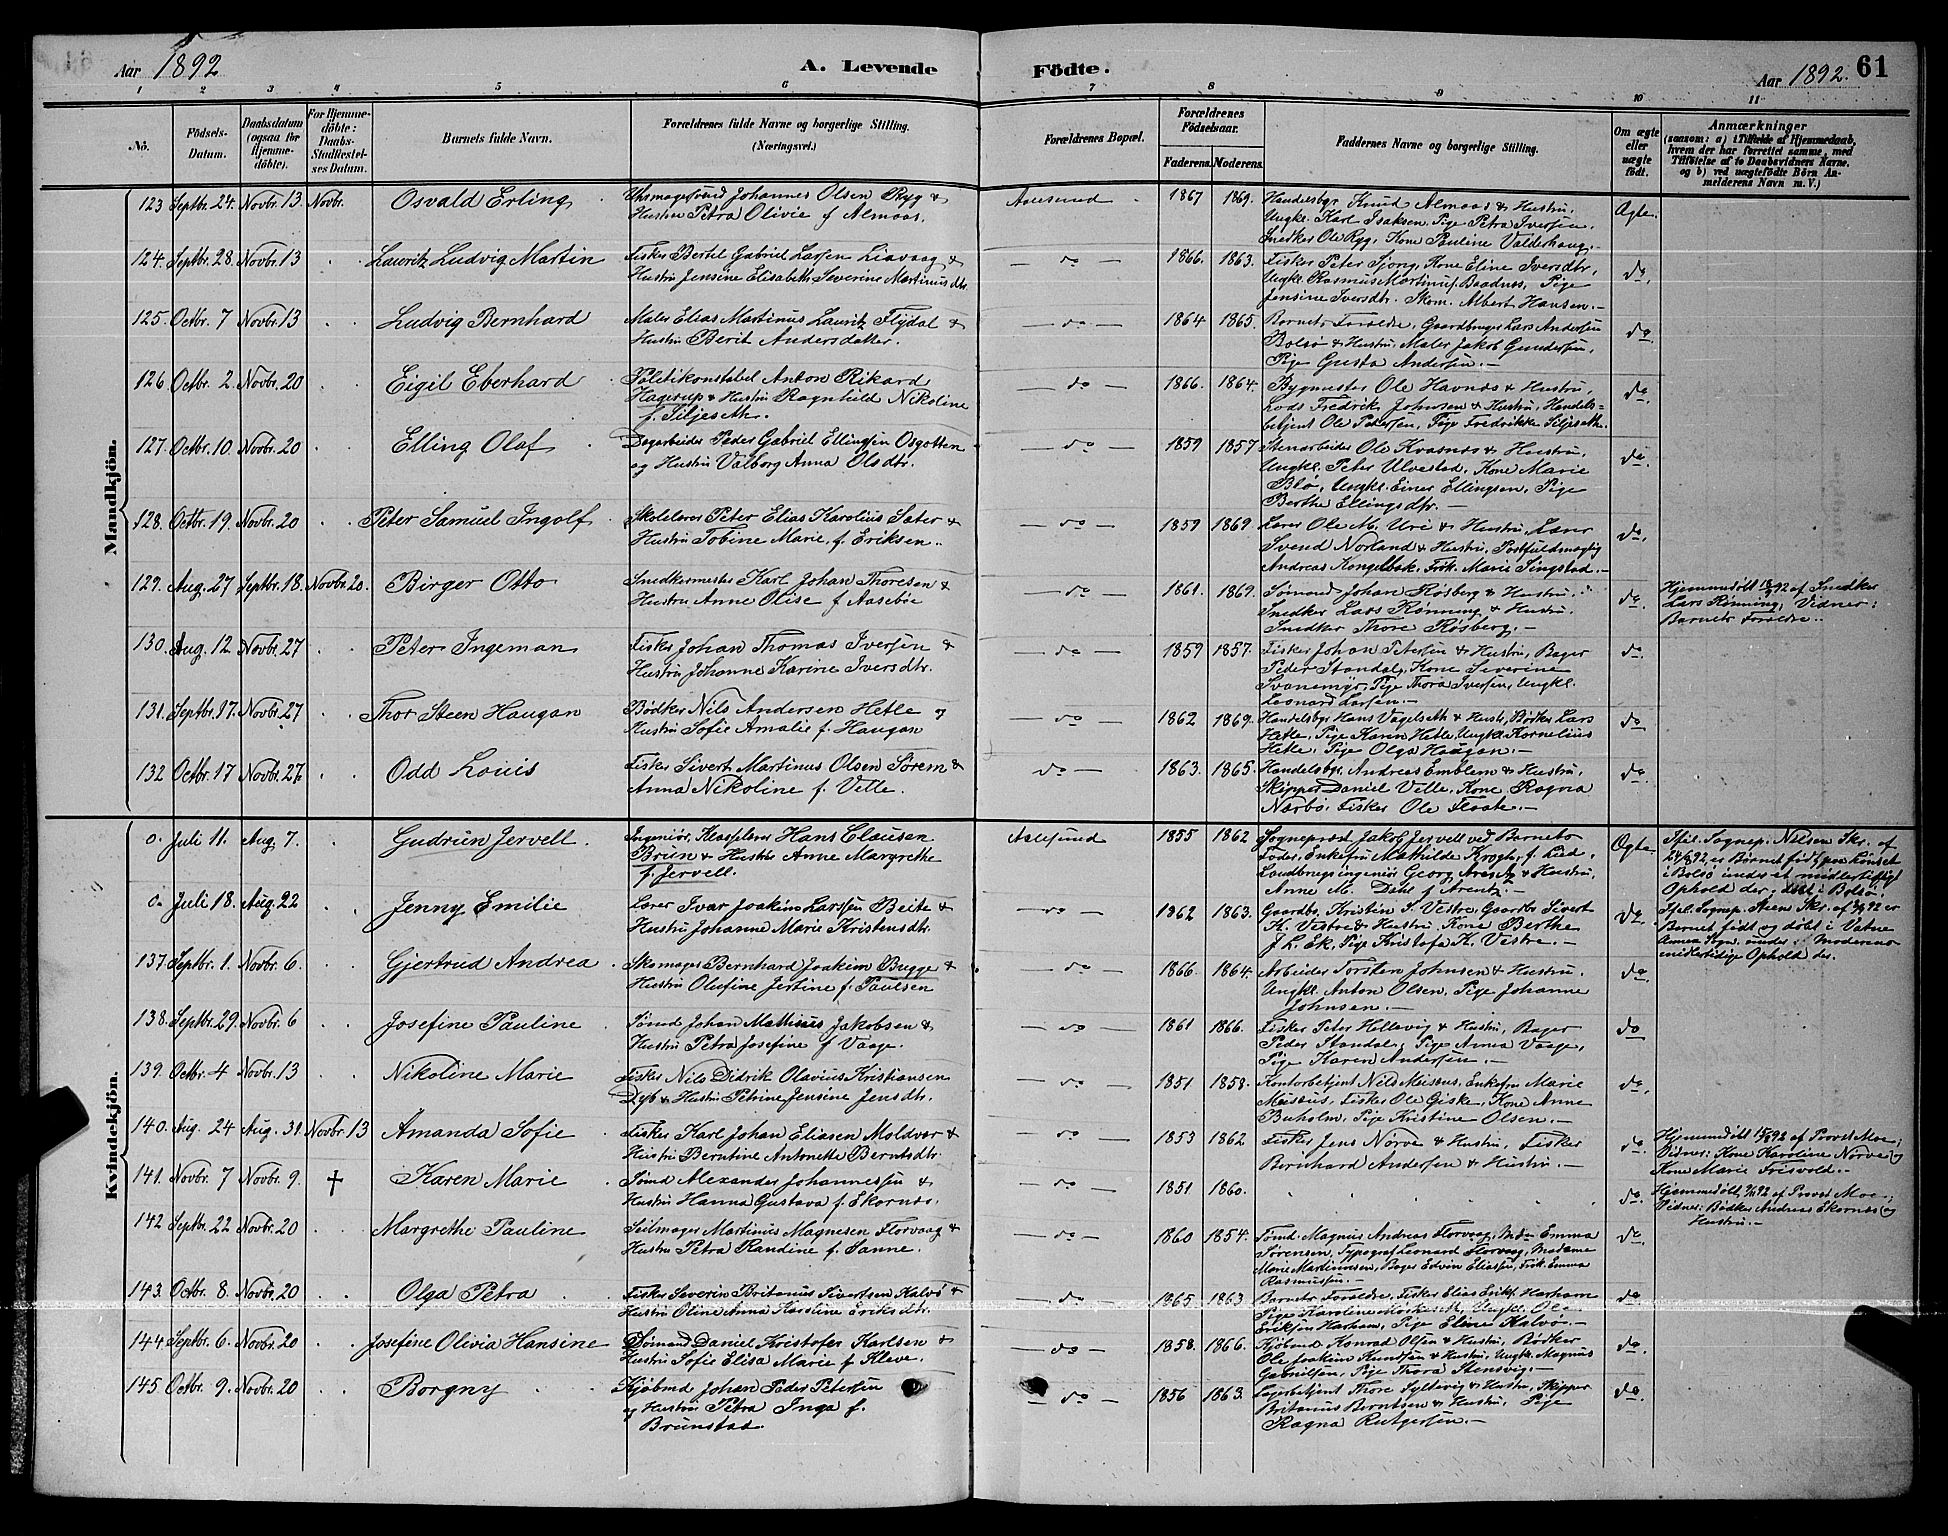 Aar 1892
A. Levende Födte.
Aar 1892. 61
1 2 3 4 5 6 7 8 9 10 11
No.
Födsels-Datum.
Daabsdatum (ogsaa for Hjemme-döbte).
For Hjemme-döbte: Daabs-Stadfæstel-ses Datum.
Barnets fulde Navn.
Forældrenes fulde Navne og borgerlige Stilling. (Næringsvei.)
Forældrenes Bopæl.
Forældrenes Födselsaar.
Faderens. Moderens.
Faddernes Navne og borgerlige Stilling.
Om ægte eller uægte födt.
Anmærkninger
(saasom: a) i Tilfælde af Hjemmedaab, hvem der har forrettet samme, med Tilföielse af to Daabsvidners Navne, og b) ved uægtefödte Börn An-melderens Navn m. V.)
Mandkjön.
123 Septbr. 24. Novbr. 13 Novbr. Osvald Erling Johannes Olsen Ryg &
Hustru Petra Olivie f. Almaas. Aalesund 1867 1869. Handelsbgr. Knud Almaas & Hustru,
Ungkl. Karl Isaksen, Pige Petra Iversen,
Snedker Ole Ryg, Kone Pauline Valderhaug. Ægte.
124. Septbr. 28. Novbr. 13 Lauritz Ludvig Martin Fisker Bertel Gabriel Larsen Liavaag &
Hustru Jensine Elisabeth Severine Martinusdtr. do 1866. 1863. Fisker Peter Sjong, Kone Eline Iversdtr,
Ungkl. Rasmus Martinus Baadnes, Pige
Jensine Iversdtr. Skom. Albert Hansen. do.
125. Octbr. 7 Novbr. 13 Ludvig Bernhard Maler Elias Martinus Lauritz Flydal &
Hustru Berit Andersdatter. do 1864 1865. Barnets Forældre, Gaardbruger Lars Andersen
Bolsø & Hustru, Maler Jakob Gundersen,
Pige Gusta Andersen. do
126. Octbr. 2. Novbr. 20 Eigil Eberhard Politikonstabel Anton Rikard
Hagerup & Hustru Ragnhild Nikoline
f. Siljeseth. do 1866. 1864. Bygmester Ole Havnæs & Hustru,
Lods Fredrik Johnsen & Hustru, Handels=
betjent Ole Petersen, Pige Fredrikke Siljeseth. do
127. Octbr. 10. Novbr. 20 Elling Olaf Dagarbeider Peder Gabriel Ellingsen Osgotten
og Hustru Valborg Anna Olsdtr. do 1859 1857 Stenarbeider Ole Kvasnes & Hustru,
Ungkl. Peter Ulvestad, Kone Marie
Blø, Ungkl. Einer Ellingsen, Pige
Berthe Ellingsdtr. do.
128. Octbr. 19. Novbr. 20 Peter Samuel Ingolf Skolelærer Peter Elias Karolius Sæter &
Hustru Tobine Marie, f. Eriksen. do 1859 1869 Lærer Ole M. Uri & Hustru, Lærer
Svend Norland & Hustru, Postfuldmægtig
Andreas Kongelbak, Frk. Marie Singstad. do.
129. Aug. 27 Septbr. 18. Novbr. 20. Birger Otto Snedkermester Karl Johan Thoresen &
Hustru Anne Olise f. Aasebøe do 1861. 1869. Sømand Johan Røsberg & Hustru,
Snedker Lars Rønning & Hustru,
Snedker Thore Røsberg. do. Hjemmedøbt 18/9 92 af Snedker
Lars Rønning, Vidner:
Barnets Forældre.
130. Aug. 12 Novbr. 27 Peter Ingeman Fisker Johan Thomas Iversen &
Hustru Johanne Karine Iversdtr. do 1859 1857. Fisker Johan Petersen & Hustru, Bager
Peder Standal, Kone Severine
Svanemyr, Pige Thora Iversen, Ungkl.
Leonard Larsen. do.
131. Septbr. 17. Novbr. 27 Thor Steen Haugan Bødker Nils Andersen Hetle og
Hustru Sofie Amalie f. Haugan do 1862 1869. Handelsbgr. Hans Vagelseth & Hustr, Bødker Lars
Hetle, Pige Karen Hetle, Ungkl. Kornelius
Hetle, Pige Olga Haugan. do
132 Octbr. 17 Novbr. 27. Odd Louis Fisker Sivert Martinus Olsen Sørem &
Anna Nikoline f. Velle. do 1863. 1865. Handelsbgr. Andreas Emblem & Hustru,
Skipper Daniel Velle, Kone Ragna
Nærbø, Fisker Ole Flaate. do.
Kvindekjön.
0. Juli 11. Aug. 7. Gudrun Jervell Ingeniør, Hans Clausen
Brun & Hustru Anne Margrethe
f. Jervell. Aalesund 1855 1862 Sogneprest Jakob Jervell ved Barnets
Enkefru Mathilde Krogh f. Lied,
Landbrugsingeniør Georg Arentz & Hustru,
Anne M. f. Arentz. Ægte Iføl. Sognep. Nilsen Skr. af
24/8 92, er Barnet født paa
i Bolsø under et midlertidigt
Ophold der; døbt i Bolsø.
0. Juli 18. Aug. 22 Jenny Emilie Lærer Ivar Joakim Larssen Beite &
Hustru Johanne Marie Kristensdtr. do 1862 1863. Gaardbr. Kristen S. Vestre, Gaardbr. Sivert
K. Vestre & Hustru, Kone Berthe
J. L. Ek, Pige Kristofa K. Vestre. do Iføl. Sognep. Steen Skr. af 92 er
Barnet født og døbt i Vatne
under Moderens
midlertidige Ophold der.
137. Septbr. 1. Novbr. 6. Gjertrud Andrea Skomager Bernhard Joakim Bugge &
Hustru Olufine Jertine f. Paulsen do 1866. 1864. Arbeider Torsten Johnsen & Hustru,
Ungkl. Anton Olsen, Pige Johanne
Johnsen. do.
138. Septbr. 29. Novbr. 6 Josefine Pauline Sømd Johan Mathius Jakobsen &
Hustru Petra Josefine f. Vaage. do 1861 1866. Fisker Peter Hellevig & Hustru, Bager
Peder Standal, Pige Anna Vaage,
Pige Karen Andersen. do
139. Octbr. 4 Novbr. 13 Nikoline Marie Fisker Nils Didrik Olavius Kristiansen
Dyb & Hustru Petrine Jensine Jensdtr. do 1851 1858. Kontorbetjent Nils Meisius, Enkefru Marie
Meisius, Fisker Ole Giske, Kone Anne
Buholm, Pige Kristine Olsen. do.
140. Aug. 24 Aug. 31. Novbr. 13 Amanda Sofie Fisker Karl Johan Eliasen Moldvær &
Hustru Berntine Antonette Berntsdtr. do 1853 1862 Fisker Jens Nørve & Hustru, Fisker
Bernhard Andersen & Hustru. do. Hjemmedøbt 92 af Provst Moe;
Vidner: Kone Karoline Nørve og
Kone Marie Frisvold.
141. Novbr. 7 Novbr. 9. † Karen Marie Sømd Alexander Johannessen &
Hustru Hanna Gustava f. Ekornæs. do 1851 1860. do. Hjemmedøbt 9/11 92 af Provst Moe;
Vidner: Bødker Andreas Ekornæs og
Hustru.
142 Septbr. 22 Novbr. 20 Margrethe Pauline Seilmager Martinus Magnesen Florvaag &
Hustru Petra Randine f. Sanne. do 1860 1854. Sømd. Magnus Andreas Florvaag, Emma
Sørensen, Typograf Leonard Florvaag, Madame
Marie Martinussen, Bager Edvin Eliassen, Frk. Emma
Rasmussen. do.
143. Octbr. 8. Novbr. 20 Olga Petra Fisker Severin Britanus Sivertsen Kalvø &
Hustru Oline Anna Karoline Eriksdtr. do 1865 1863 Barnets Forældre, Fisker Elias Erikf. Harham
Pige Karoline Mørkeseth, Ungkl. Ole
Eriksen Harham, Pige Eline Kalvø. do
144 Septbr. 6. Novbr. 20 Josefine Olivia Hansine Sømand Daniel Kristofer Karlsen &
Hustru Sofie Elisa Marie f. Kleve. do 1858. 1866. Kjøbmd Konrad Olsen & Hustru, Bødker
Ole Joakim Knudsen & Hustru, Ungkl. Magnus
Gabrielsen, Pige Thora Stensvig. do.
145 Octbr. 9. Novbr. 20 Borgny Kjøbmd Johan Peder Petersen
og Hustru Petra Inga f.
Brunstad. do 1856 1863. Lagerbetjent Thore Syltevig & Hustru, Skipper
Britanus Berntsen & Hustru, Pige
Ragna Rutgersen. do